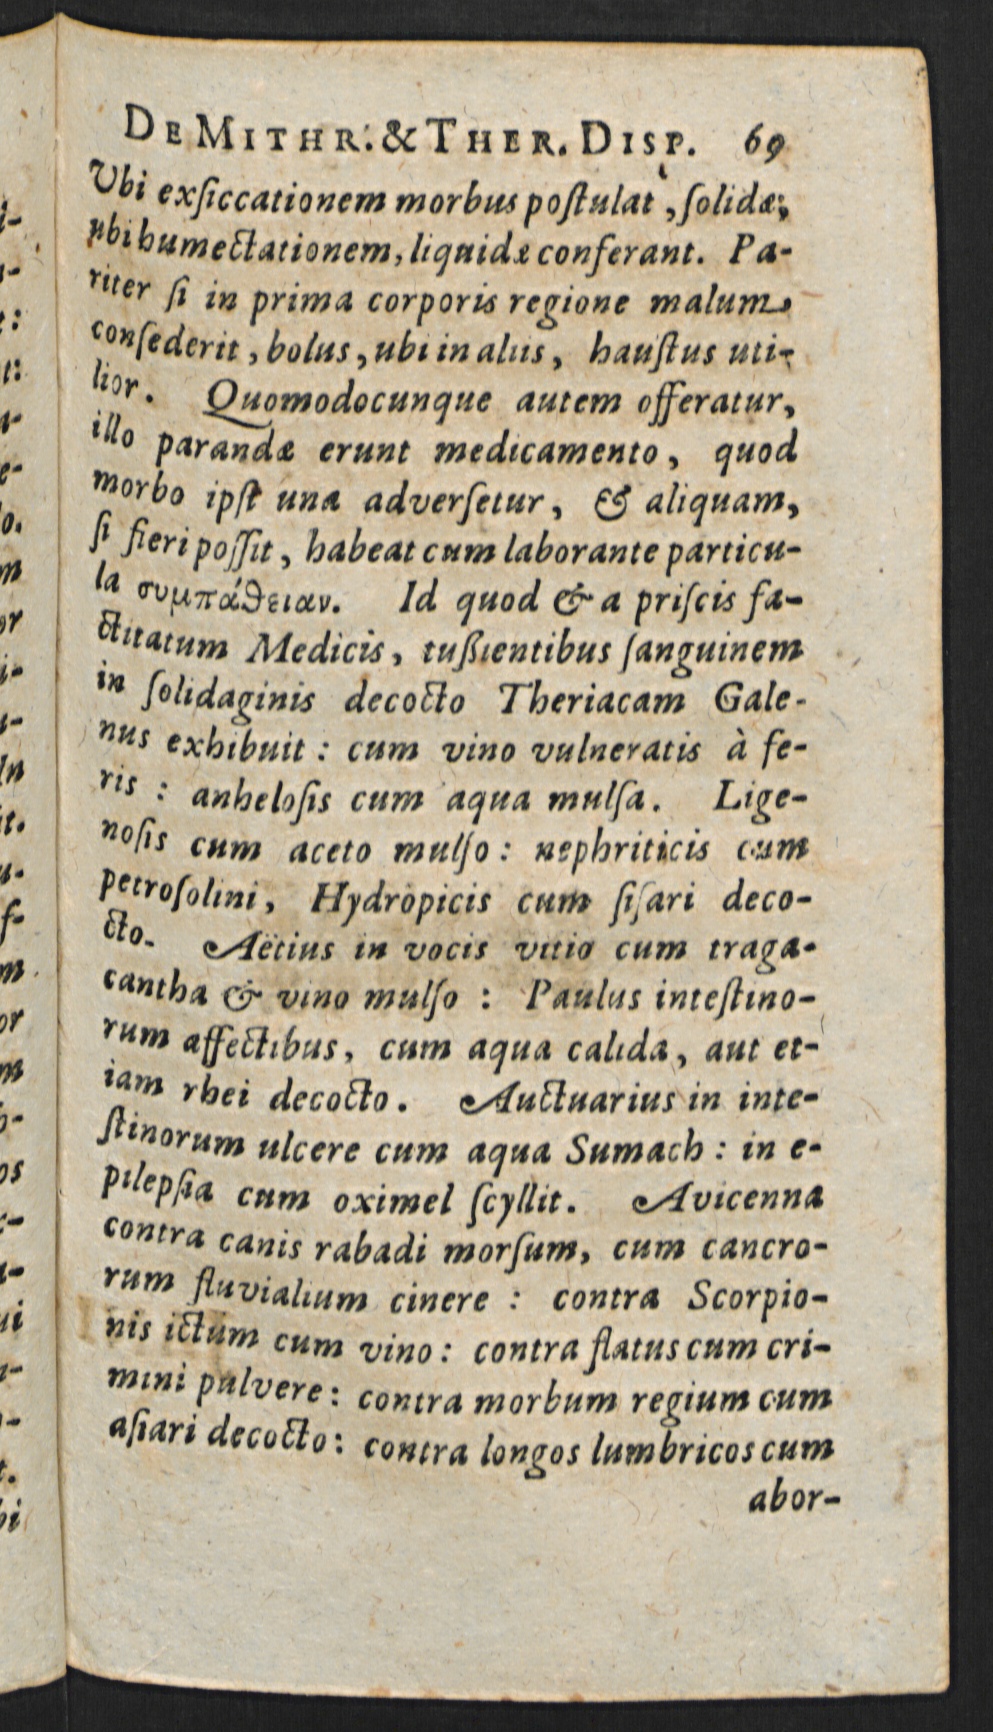 DE MITHR. & THER. DISP. 69
Vbi exſiccationem morbus poſtulat, ſolidæ;
ubi humectationem, liquidæ conferant. Pa-
riter ſi in prima corporis regione malum
conſederit, bolus, ubi in aliis, hauſtus uti-
lior. Quomodocunque autem offeratur,
illo parandæ erunt medicamento, quod
morbo ipſi una adverſetur, & aliquam,
ſi fieri poſſit, habeat cum laborante particu-
la συμπάθειαν. Id quod & a priſcis fa-
ctitatum Medicis, tußientibus ſanguinem
in ſolidaginis decocto Theriacam Gale-
nus exhibuit: cum vino vulneratis à fe-
ris: anheloſis cum aqua mulſa. Lige-
noſis cum aceto mulſo: nephriticis cum
petroſolini, Hydropicis cum ſiſari deco-
cto. Aëtius in vocis vitio cum traga-
cantha & vino mulſo: Paulus inteſtino-
rum affectibus, cum aqua calida, aut et-
iam rhei decocto. Auctuarius in inte-
ſtinorum ulcere cum aqua Sumach: in e-
pilepſia cum oximel ſcyllit. Avicenna
contra canis rabadi morſum, cum cancro-
rum fluvialium cinere: contra Scorpio-
nis ictum cum vino: contra flatus cum cri-
mini pulvere: contra morbum regium cum
aſiari decocto: contra longos lumbricos cum
abor-